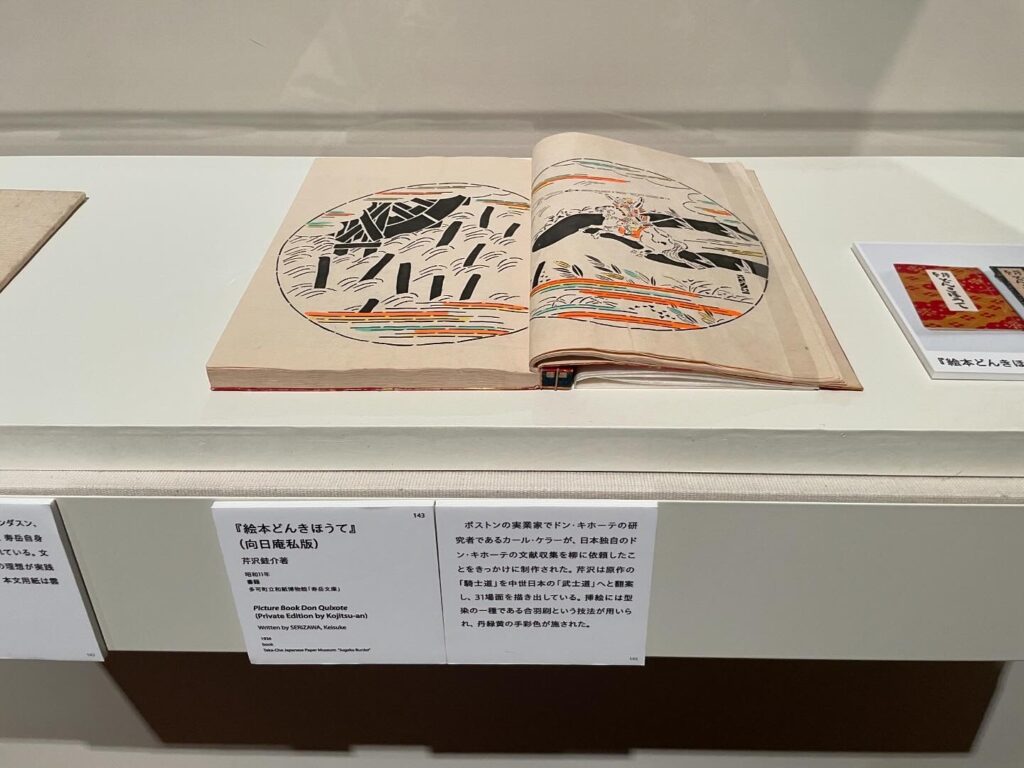 ンダスン、
寿岳自身
れている。文
の理想が実践
本文用紙は雲
143
『絵本どんきほうて』
(向日庵私版)
芹沢銈介著
昭和11年
書籍
多可町立和紙博物館「寿岳文庫」
Picture Book Don Quixote
(Private Edition by Kojitsu-an)
Written by SERIZAWA, Keisuke
1936
book
Taka-Cho Japanese Paper Museum "Jugaku Bunko"
ボストンの実業家でドン・キホーテの研
究者であるカール・ケラーが、日本独自のド
ン・キホーテの文献収集を柳に依頼したこ
とをきっかけに制作された。芹沢は原作の
「騎士道」を中世日本の「武士道」へと翻案
し、31場面を描き出している。挿絵には型
染の一種である合羽刷という技法が用いら
れ、丹緑黄の手彩色が施された。
143
『絵本どんきほ